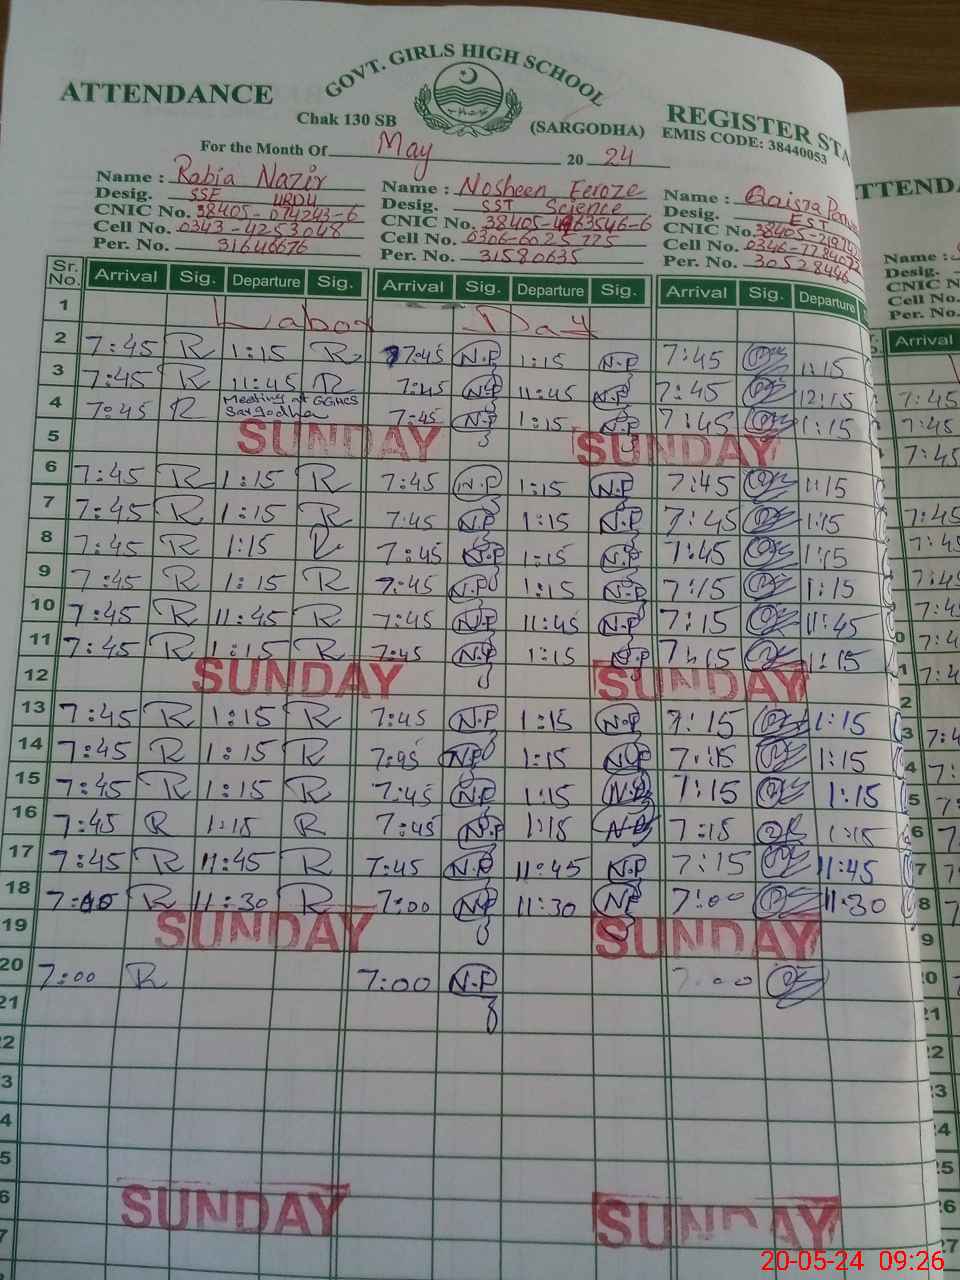 GOVT. GIRLS HIGH SCHOOL
ATTENDANCE
REGISTER STA
Chak 130 SB
(SARGODHA)
EMIS CODE: 38440053
For the Month Of May 20 24
Name : Rabia Nazir
Desig. SSE URDU
CNIC No.
Cell No. 0343-4253048
Per. No. 31646676
Name : Nosheen Feroze
Desig. SST Science
CNIC No.
Cell No. 0306-6025775
Per. No. 31580635
Name : Qaisra
Desig. EST
CNIC No.
Cell No.
Per. No. 30528446
TTENDA
Name :
Desig.
CNIC No.
Cell No.
Per. No.
Sr. No. Arrival Sig. Departure Sig. Arrival Sig. Departure Sig. Arrival Sig. Departure
Arrival
1 Labor Day
2 7:45 R 1:15 R 7:45 N.P 1:15 N.P 7:45 1:15
3 7:45 R 11:45 R 7:45 N.P 11:45 N.P 7:45 12:15
4 7:45 R Meeting at GGHCS Sargodha 7:45 N.P 1:15 N.P 7:45 1:15
5 SUNDAY SUNDAY
6 7:45 R 1:15 R 7:45 N.P 1:15 N.P 7:45 1:15
7 7:45 R 1:15 R 7:45 N.P 1:15 N.P 7:45 1:15
8 7:45 R 1:15 R 7:45 N.P 1:15 N.P 7:45 1:15
9 7:45 R 1:15 R 7:45 N.P 1:15 N.P 7:15 1:15
10 7:45 R 11:45 R 7:45 N.P 11:45 N.P 7:15 11:45
11 7:45 R 1:15 R 7:45 N.P 1:15 N.P 7:15 1:15
12 SUNDAY SUNDAY
13 7:45 R 1:15 R 7:45 N.P 1:15 N.P 7:15 1:15
14 7:45 R 1:15 R 7:45 N.P 1:15 N.P 7:15 1:15
15 7:45 R 1:15 R 7:45 N.P 1:15 N.P 7:15 1:15
16 7:45 R 1:15 R 7:45 N.P 1:15 N.P 7:15 1:15
17 7:45 R 11:45 R 7:45 N.P 11:45 N.P 7:15 11:45
18 R 11:30 R 7:00 N.P 11:30 N.P 7:00 11:30
19 SUNDAY SUNDAY
20 7:00 R 7:00 N.P 7:00
21
22
3
4
5
6 SUNDAY SUNDAY
7
20-05-24 09:26